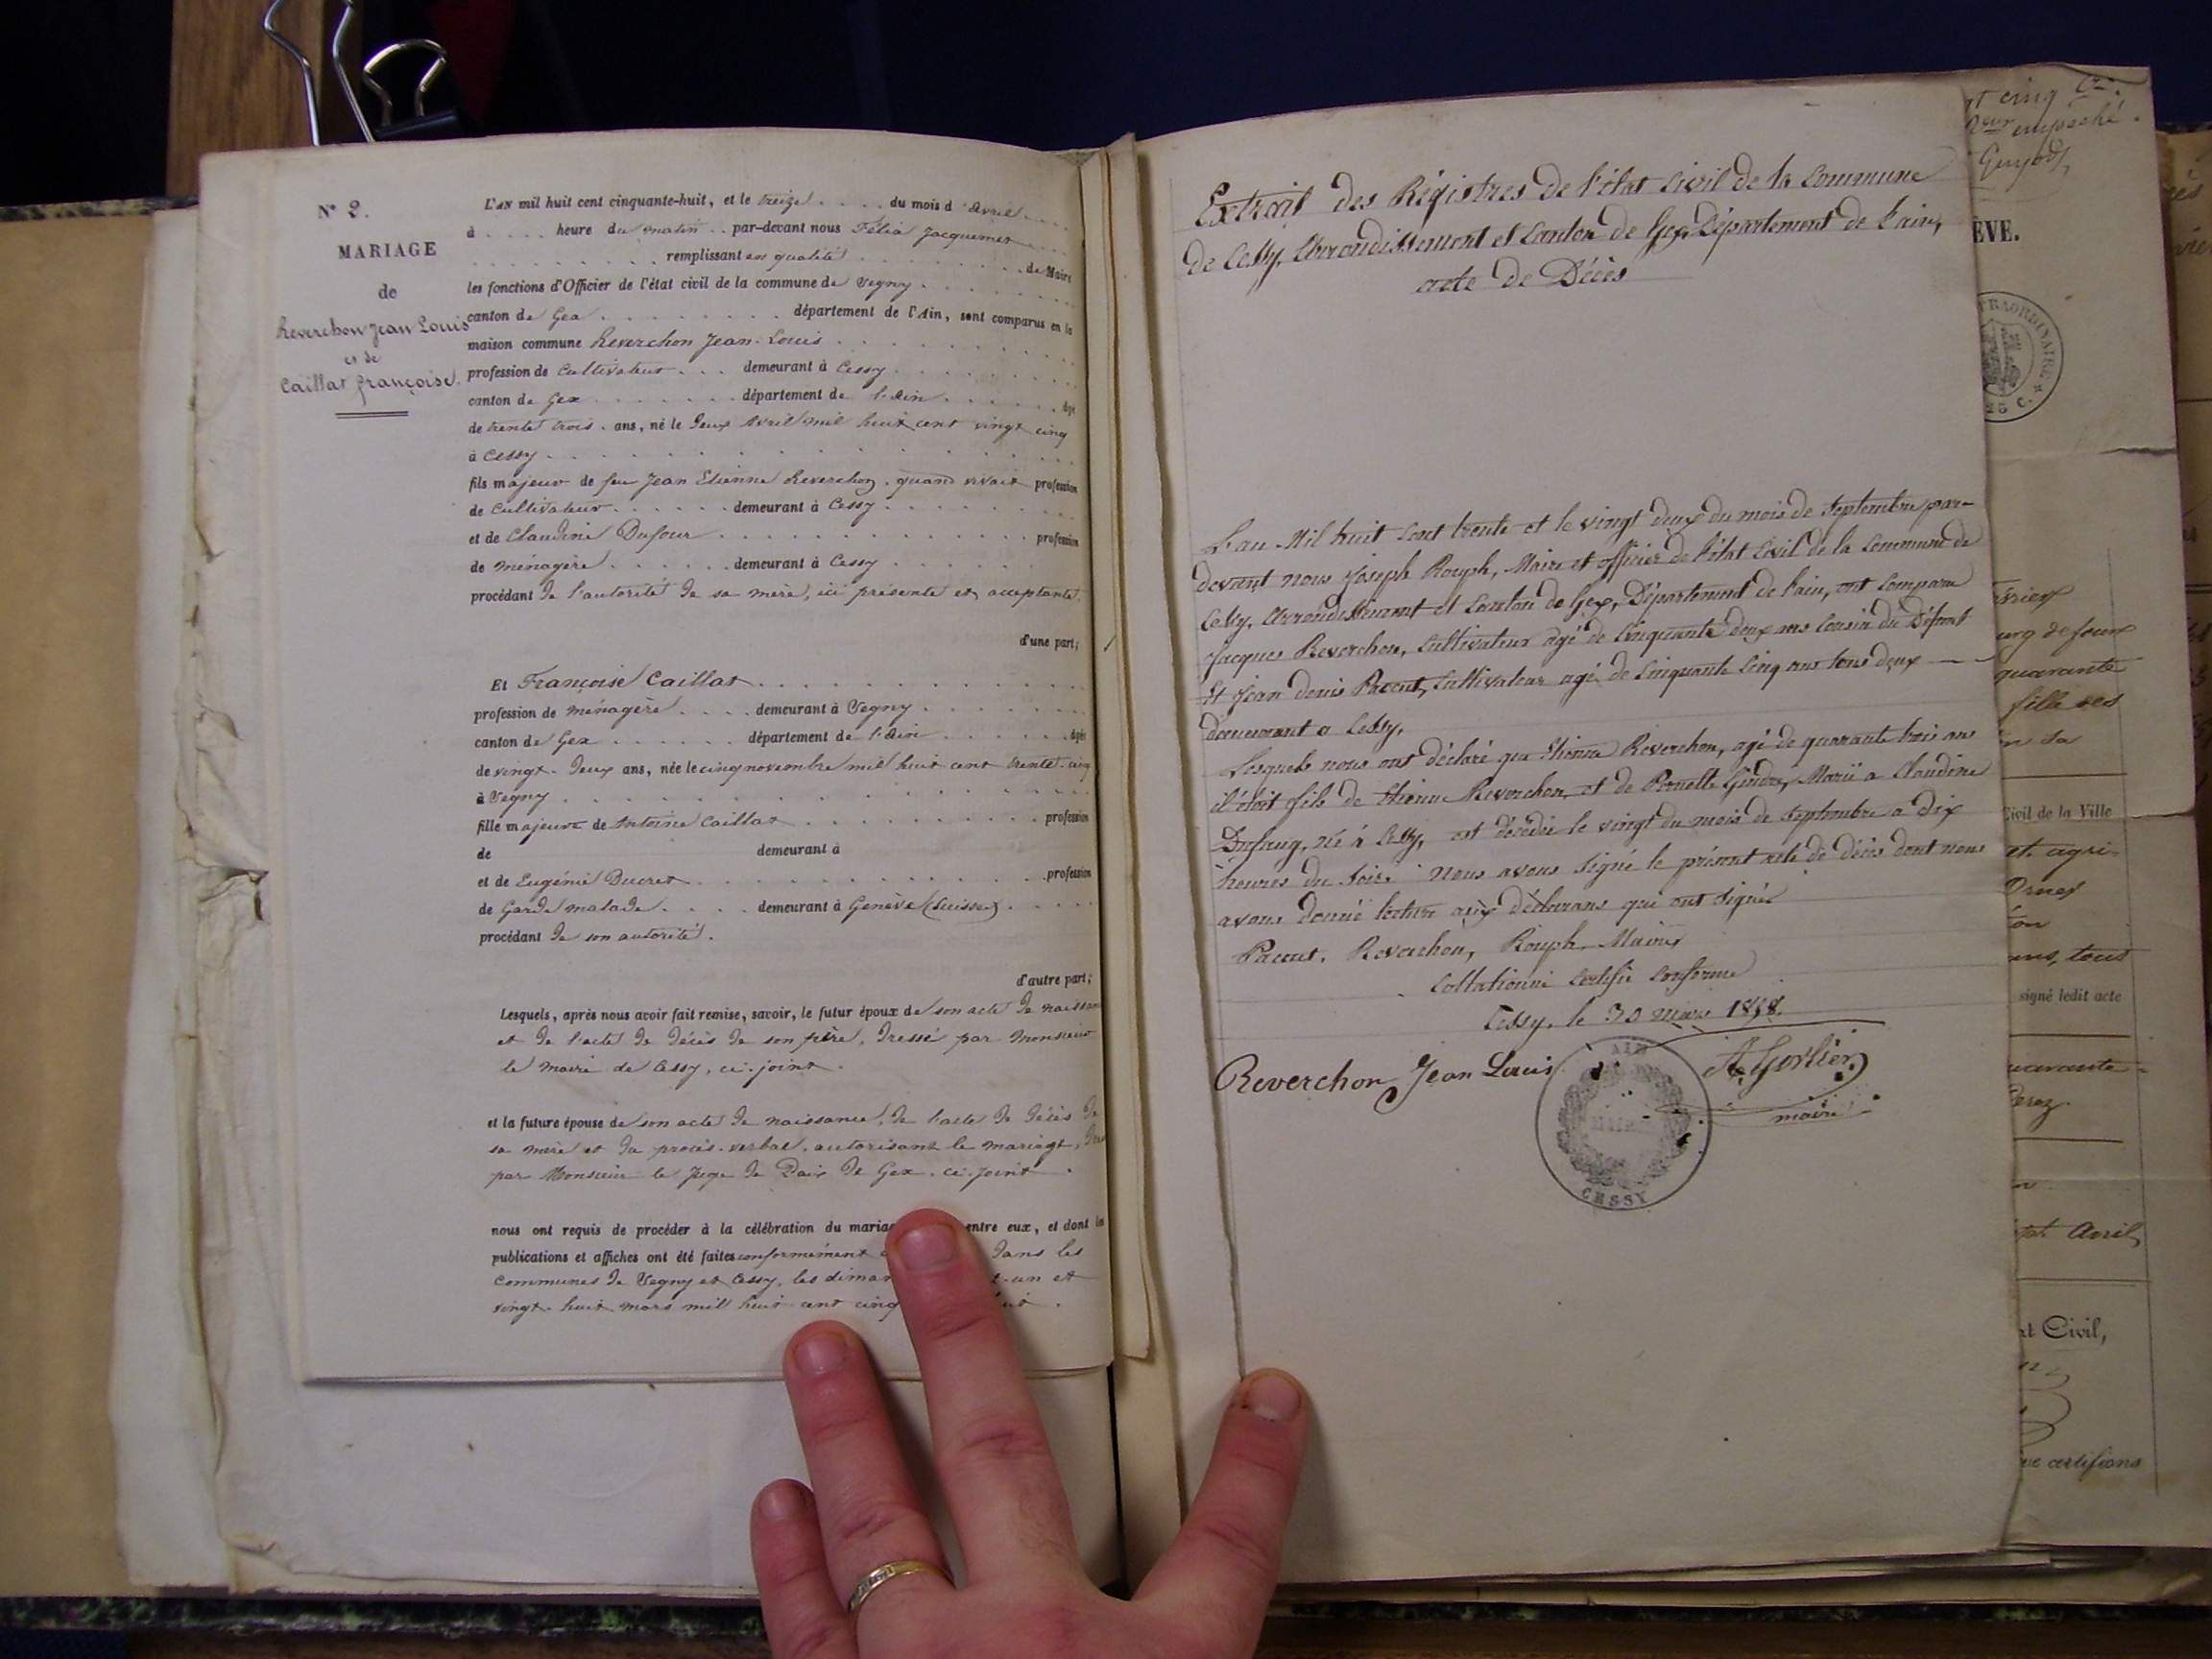 N° 2.
MARIAGE
de
Reverchon Jean Louis
et de
Caillat françoise.
L'AN mil huit cent cinquante-huit, et le treize du mois d'avril
à heure du matin par-devant nous Félix Jacquemet
remplissant en qualité de Maire
les fonctions d'Officier de l'état civil de la commune de Segny
canton de Gex département de l'Ain, sont comparus en la
maison commune Reverchon Jean-Louis
profession de Cultivateur demeurant à Cessy
canton de Gex département de l'Ain âgé
de trente trois ans, né le deux Avril mil huit cent vingt cinq
à Cessy
fils majeur de feu Jean Etienne Reverchon, quand vivait profession
de Cultivateur demeurant à Cessy
et de Claudine Dufour profession
de ménagère demeurant à Cessy
procédant de l'autorité de sa mère, ici présente et acceptante.
d'une part;
Et Françoise Caillat
profession de ménagère demeurant à Segny
canton de Gex département de l'Ain âgée
de vingt-deux ans, née le cinq novembre mil huit cent trente-cinq
à Segny
fille majeure de Antoine Caillat profession
de demeurant à
et de Eugénie Ducret profession
de Garde malade demeurant à Genève (Suisse)
procédant de son autorité.
d'autre part;
Lesquels, après nous avoir fait remise, savoir, le futur époux de son acte de naissan
et de l'acte de décès de son père, dressé par Monsieur
le maire de Cessy, ci-joint.
et la future épouse de son acte de naissance, de l'acte de décès de
sa mère et du procès-verbal, autorisant le mariage,
par Monsieur le Juge de Paix de Gex, ci-joint.
nous ont requis de procéder à la célébration du mariag entre eux, et dont les
publications et affiches ont été faites conformément dans les
communes de Segny et Cessy, les diman t-un et
vingt-huit mars mil huit cent cinq uit.
Extrait des Régistres de l'état Civil de la Commune
de Cessy, Arrondissement et Canton de Gex, Département de l'ain,
acte de Décès
L'an Mil huit Cent trente et le vingt deux du mois de Septembre par-
devant nous Joseph Rouph, Maire et officier de l'état Civil de la Commune de
Cessy, Arrondissement et Canton de Gex, Département de l'ain, ont Comparu
Jacques Reverchon, Cultivateur agé de Cinquante deux ans Cousin du Défunt
Et Jean Denis Pacaut, Cultivateur agé de Cinquante Cinq ans tous deux
demeurant a Cessy,
Lesquels nous ont déclaré que Etienne Reverchon, agé de quarante trois ans
il étoit fils de Etienne Reverchon, et de Pernette Gindre, Marié a Claudine
né à Cessy, est décédée le vingt du mois de Septembre a Dix
heures du Soir. Nous avons Signé le présent acte de décès dont nous
avons donné lecture aux déclarans qui ont Signé
Pacaut, Reverchon, Rouph, Maire
Collationné Certifié Conforme
Cessy, le 30 mars 1858.
Reverchon Jean Louis
A Gorlier
maire
AIN
MAIRIE
CESSY
gt cinq
empeché.
Guyod
ÈVE.
TRAORDINAIRE
25 C.
quarante
fille
sa
Civil de la Ville
et agri
ans, tous
signé ledit acte
quarante
avril
at Civil,
certifions